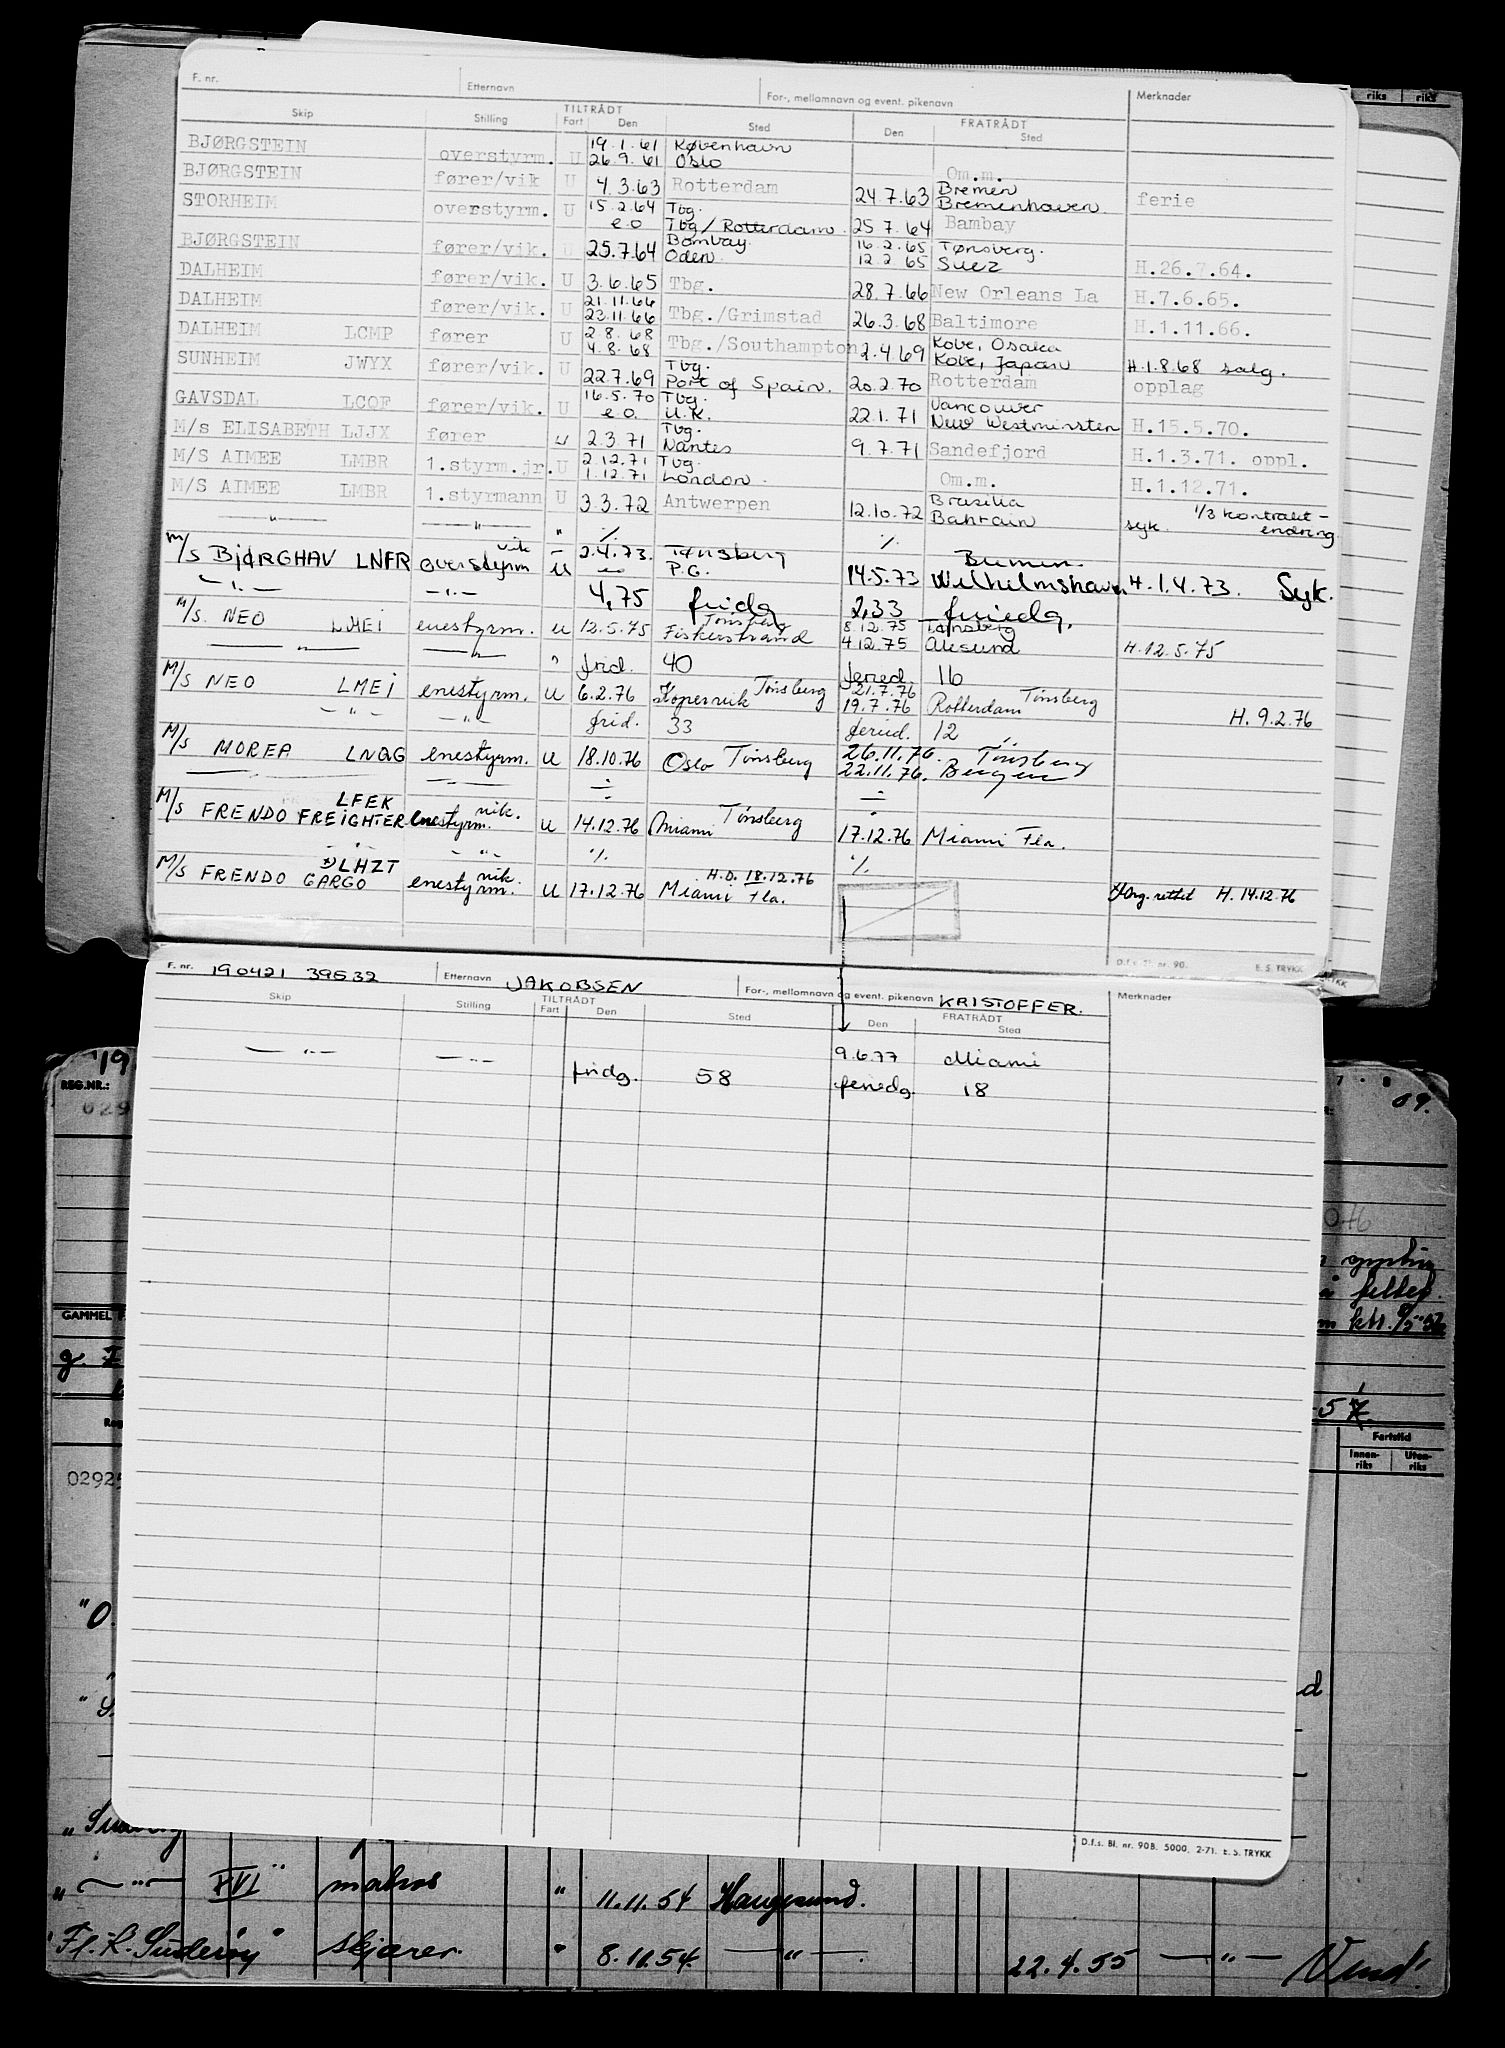 F. nr. Etternavn For-, mellomnavn og event. pikenavn Merknader
Skip Stilling TILTRÅDT Fart Den Sted FRATRÅDT Den Sted
BJØRGSTEIN overstyrm. U 19.1.61 København
26.9.61 Oslo Om.m.
BJØRGSTEIN fører/vik U 4.3.63 Rotterdam 24.7.63 Bremen
Bremenhaven ferie
STORHEIM overstyrm. U 15.2.64 Tbg.
e.o Tbg/Rotterdam. 25 7.64 Bambay
BJØRGSTEIN fører/vik. U 25.7.64 Bombay. 16.2.65 Tønsberg.
Oden. 12.2 65 Suez H.26.7.64.
DALHEIM fører/vik. U 3.6.65 Tbg. 28.7.66 New Orleans La H.7.6.65.
DALHEIM fører/vik. U 21.11.66
23.11.66 Tbg./Grimstad 26.3.68 Baltimore H.1.11.66.
DALHEIM LCMP fører U 2 8. 68
4.8. 68 Tbg./Southampton 2.4.69 Kobe, Osaka
Kobe, Japan H.1.8.68 salg.
SUNHEIM JWYX fører/vik. U 22.7.69 Tbg.
Port of Spain. 20.2.70 Rotterdam opplag
GAVSDAL LCOF fører/vik. U 16.5.70 Tbg.
e.o. U.K. 22.1.71 Vancouver
New Westminster H.15.5.70.
M/s ELISABETH LJJX fører U 2.3.71 Tbg.
Nantes 9.7.71 Sandefjord H.1.3.71. oppl.
M/S AIMEE LMBR 1.styrm.jr. U 2.12.71 Tbg.
1.12.71 London. Om.m. H.1.12.71.
M/S AIMEE LMBR 1.styrmann U 3.3.72 Antwerpen 12.10.72 Brasilia
Bahrain syk. 1/3 kontrakt-
endring
—"— —"— " ./. ./.
M/S BJØRGHAV LNFR overstyrm vik U 2.4.73. Tønsberg
eo P.G. 14.5.73 Bremen.
Wilhelmshaven H.1.4.73. Syk.
—"— —"— 4,75 fridg 2,33 feriedg.
M/S. NEO LMEI enestyrm. U 12.5.75 Tønsberg
Fiskerstrand 8.12.75 Tønsberg
4.12.75 Ålesund H.12.5.75
—"— —"— " frid. 40 feried. 16
M/S NEO LMEI enestyrm. U 6.2.76 Kopervik Tønsberg 21.7.76
19.7.76 Rotterdam Tønsberg H. 9.2.76
—"— —"— frid. 33 feried. 12
M/S MOREA LNQG enestyrm. U 18.10.76 Oslo Tønsberg 26.11.76. Tønsberg
22.11.76. Bergen
M/S FRENDO FREIGHTER LFEK enestyrm. vik. U 14.12.76 Miami Tønsberg 17.12.76 Miami Fla.
—"— —"— ./. ./.
M/S FRENDO CARGO x) LHZT enestyrm. vik. U 17.12.76 H.D. 18.12.76
Miami Fla. rettet H. 14.12.76
D.f.s. Bl. nr. 90. E. S. TRYKK
F. nr. 190421 39532 Etternavn JAKOBSEN For-, mellomnavn og event. pikenavn KRISTOFFER. Merknader
Skip Stilling TILTRÅDT Fart Den Sted FRATRÅDT Den Sted
—"— —"— 9.6.77 Miami
fridg. 58 feriedg. 18
D.f.s. Bl. nr. 90B. 5000. 2-71. E. S. TRYKK
REG.NR.:
029
GAMMEL
0292
Fartstid
Innen-
riks Uten-
riks
„ —"— XVI" matros " 11.11.54 Haugesund.
"Fl. k. Suderøy" skjærer. " 8.11.54. —"—. 22.4.55 —"— Vend!